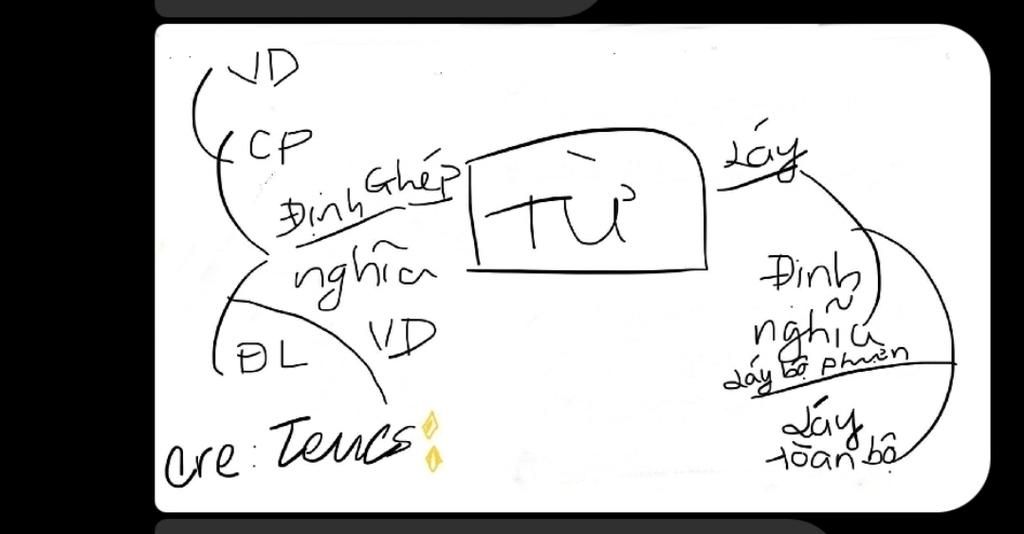 VD
CP
Ghép
Định
nghĩa
ĐL
VD
TỪ
Láy
Định
nghĩa
Láy bộ phận
Láy
toàn bộ
cre: Teucs